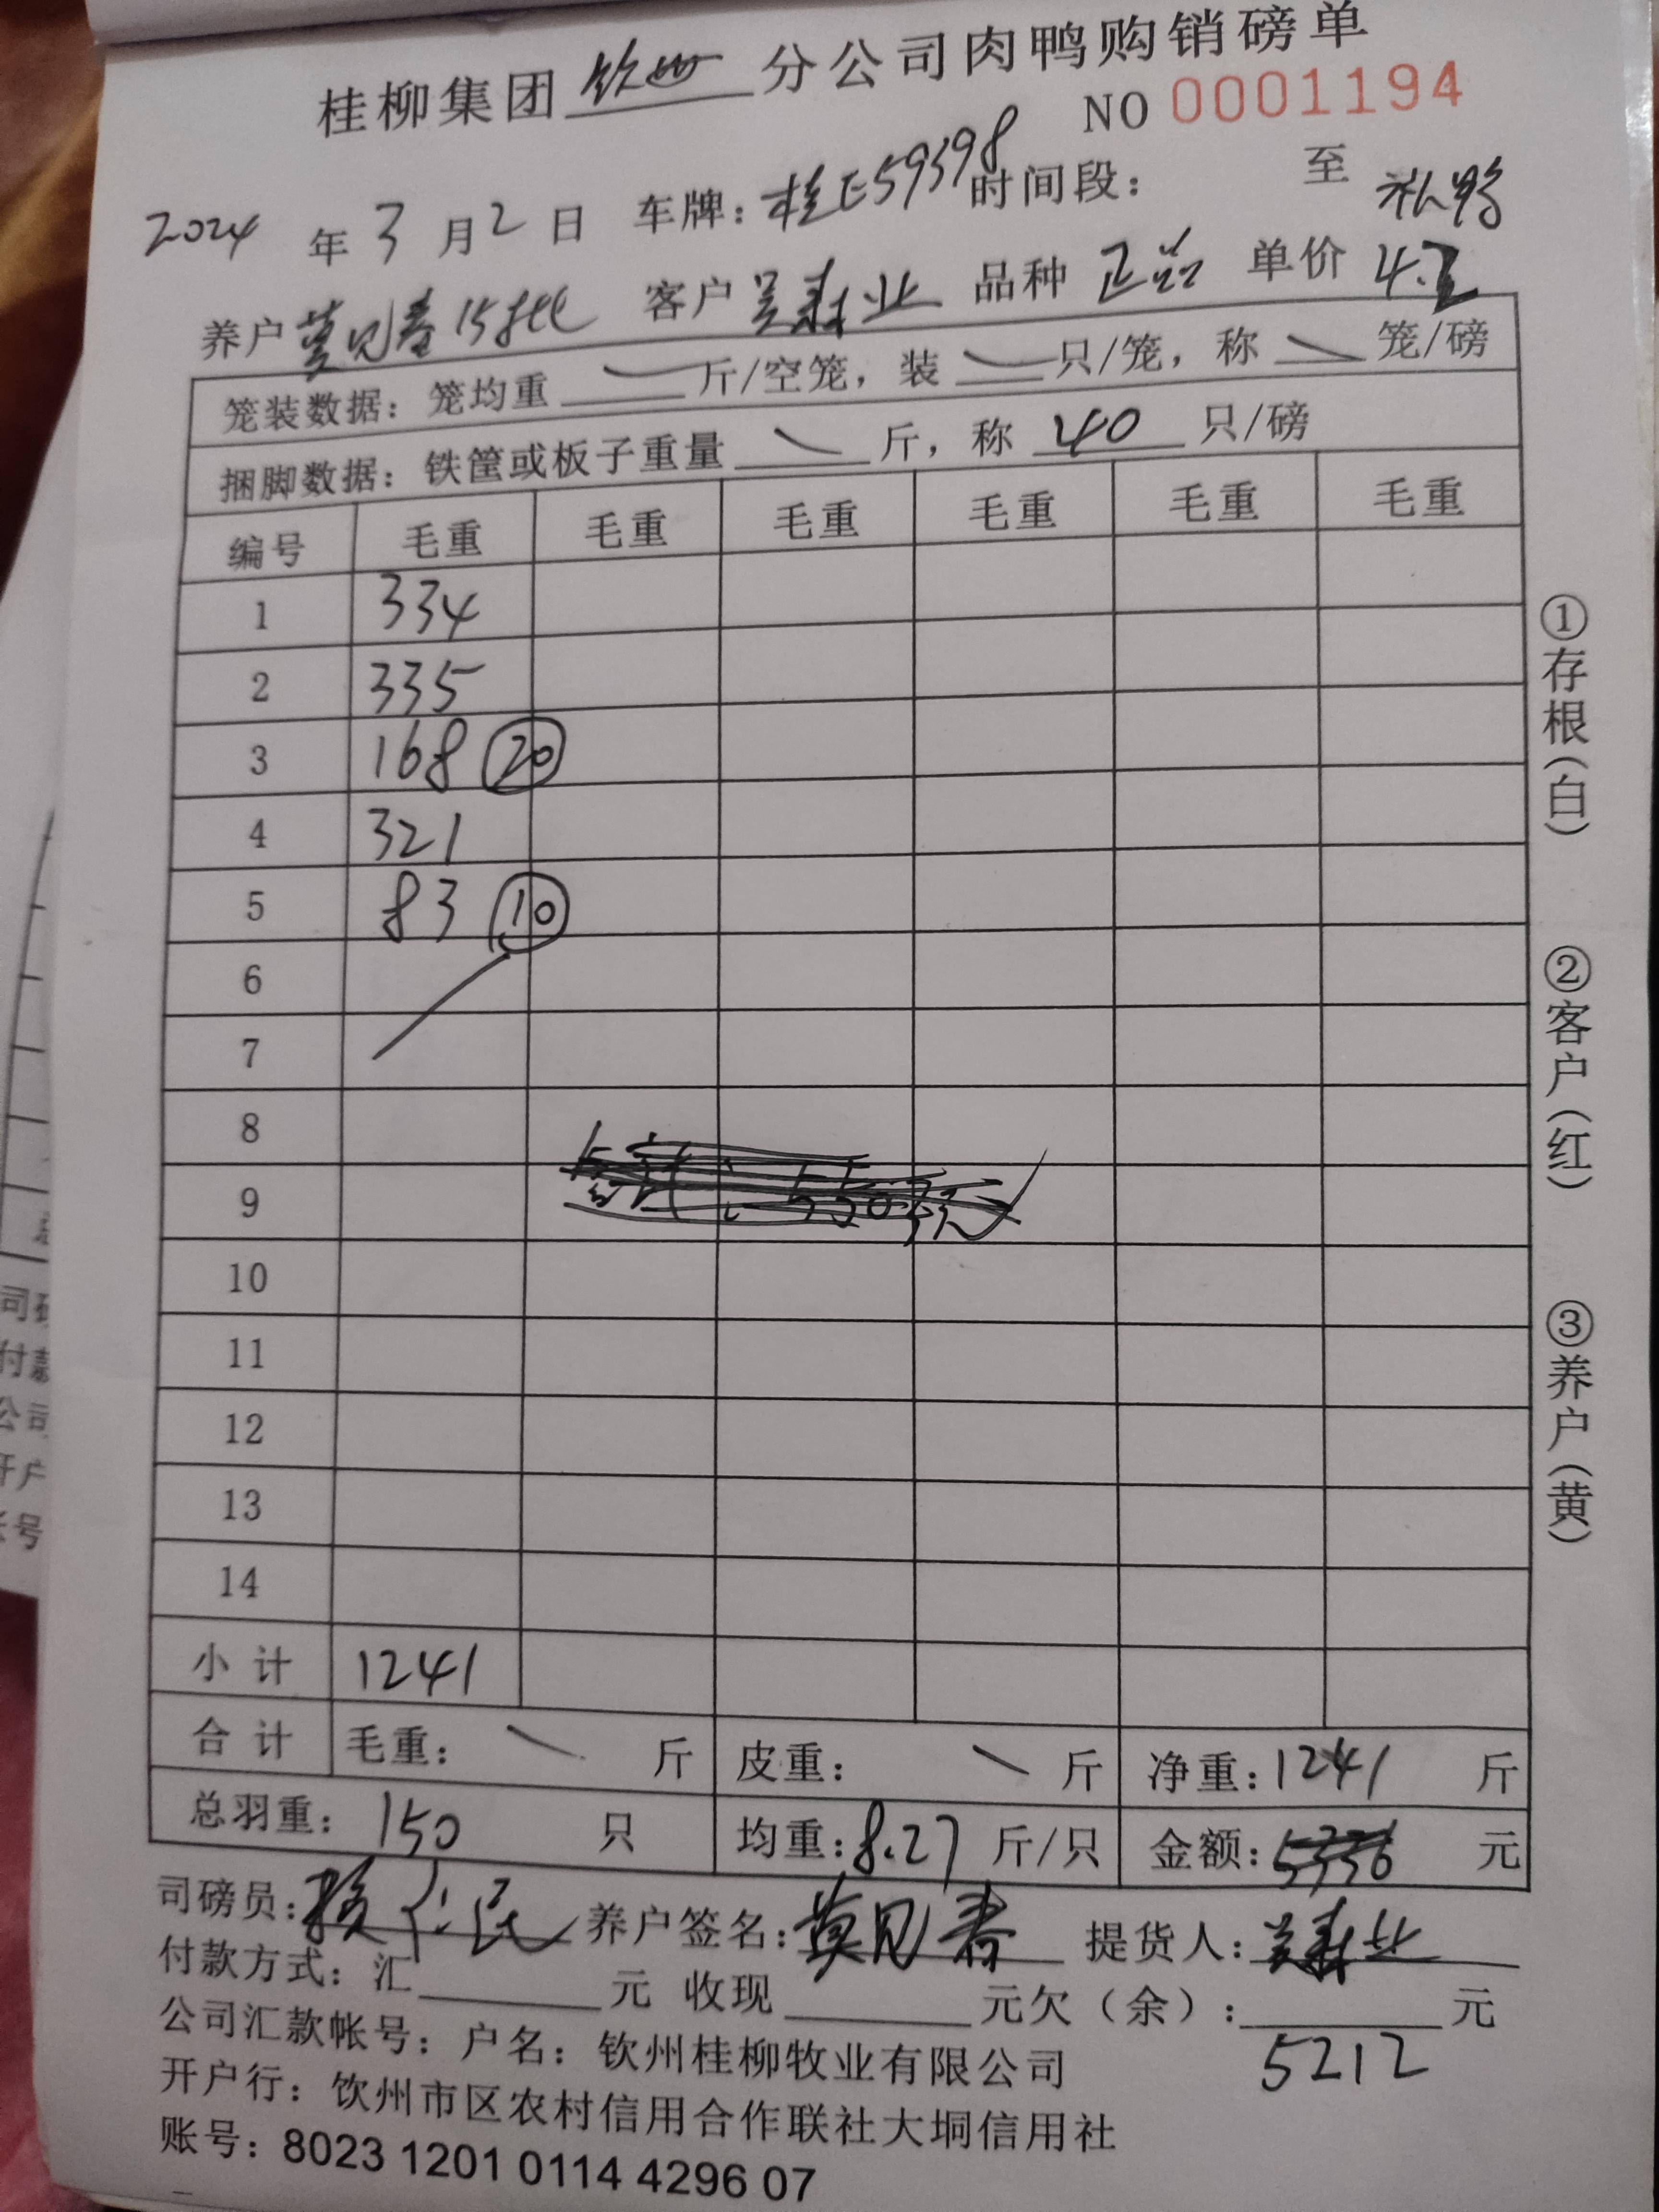 桂柳集团钦州分公司肉鸭购销磅单
NO 0001194
2024年3月2日 车牌：桂E59398 时间段： 至
补鸭
养户莫见春15批 客户吴寿业 品种正品 单价4.2
笼装数据：笼均重 斤/空笼，装 只/笼，称 笼/磅
捆脚数据：铁筐或板子重量 斤，称 40 只/磅
编号 毛重 毛重 毛重 毛重 毛重 毛重
1 334
2 335
3 168 20
4 321
5 83 10
6
7
8
9
10
11
12
13
14
小计 1241
合计 毛重： 斤 皮重： 斤 净重：1241 斤
总羽重：150 只 均重：8.27 斤/只 金额：5336 元
司磅员： 养户签名：莫见春 提货人：吴寿业
付款方式：汇 元 收现 元欠（余）： 元
5212
公司汇款帐号：户名：钦州桂柳牧业有限公司
开户行：钦州市区农村信用合作联社大垌信用社
账号：8023 1201 0114 4296 07
①存根（白）
②客户（红）
③养户（黄）